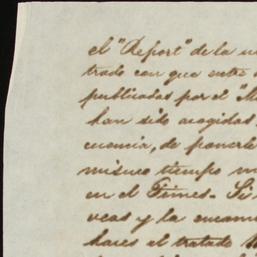 el "Report" de la
trado con que entre
publicadas por el "
han sido acogidas
cenomia, de ponerle
mismo tiempo
en el Times. Si
veas y la
haces el tratado